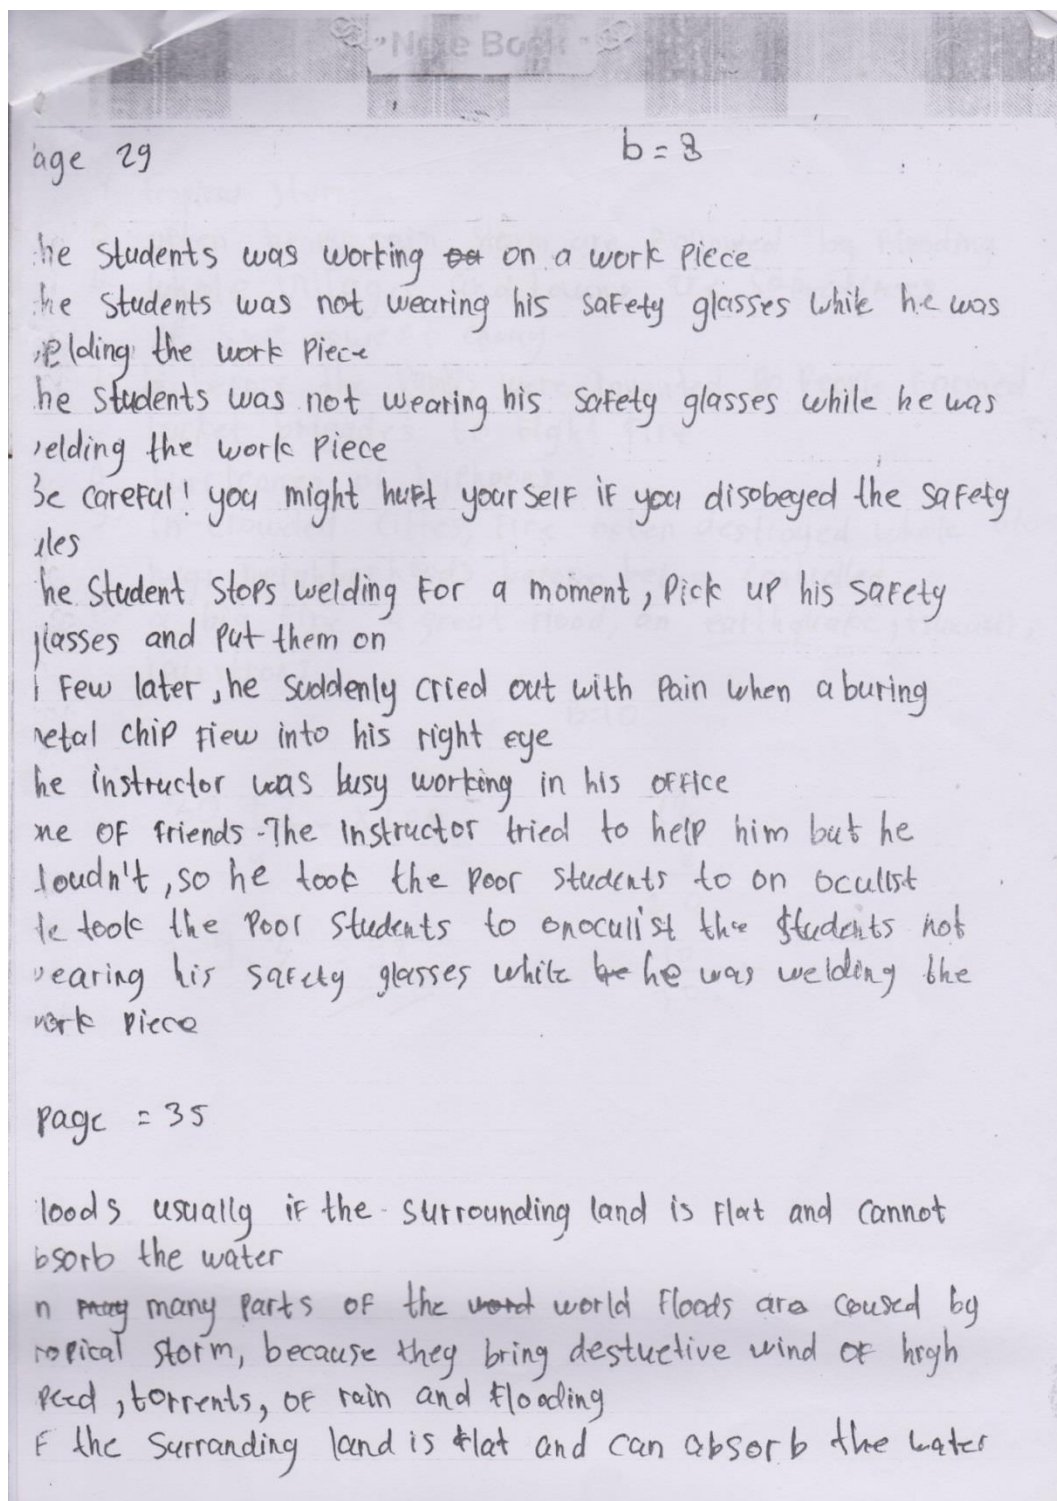 Note Book
age 29 b = 8
he students was working on a work piece
he students was not wearing his safety glasses while he was
elding the work piece
he students was not wearing his safety glasses while he was
elding the work piece
Be careful! you might hurt yourself if you disobeyed the safety
ules
he student stops welding for a moment, pick up his safety
glasses and put them on
Few later, he suddenly cried out with pain when a buring
metal chip fiew into his right eye
he instructor was busy working in his office
ne of friends - The instructor tried to help him but he
loudn't, so he took the poor students to on ocullst
He took the poor students to onoculist the students not
wearing his safety glasses while he was welding the
work piece
page = 35
loods usually if the surrounding land is flat and cannot
bsorb the water
n many parts of the world floods are coused by
ropical storm, because they bring destuctive wind of high
peed, torrents, of rain and flooding
f the surranding land is flat and can absorb the water